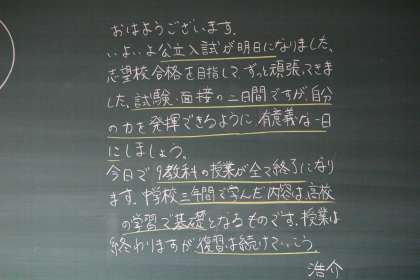 おはようございます。
いよいよ公立入試が明日になりました。
志望校合格を目指して、ずっと頑張ってきま
した。試験・面接の二日間ですが、自分
の力を発揮できるように有意義な一日
にしましょう。
今日で9教科の授業が全て終了になり
ます。中学校三年間で学んだ内容は高校
の学習で基礎となるものです。授業は
終わりますが復習は続けていこう。
浩介